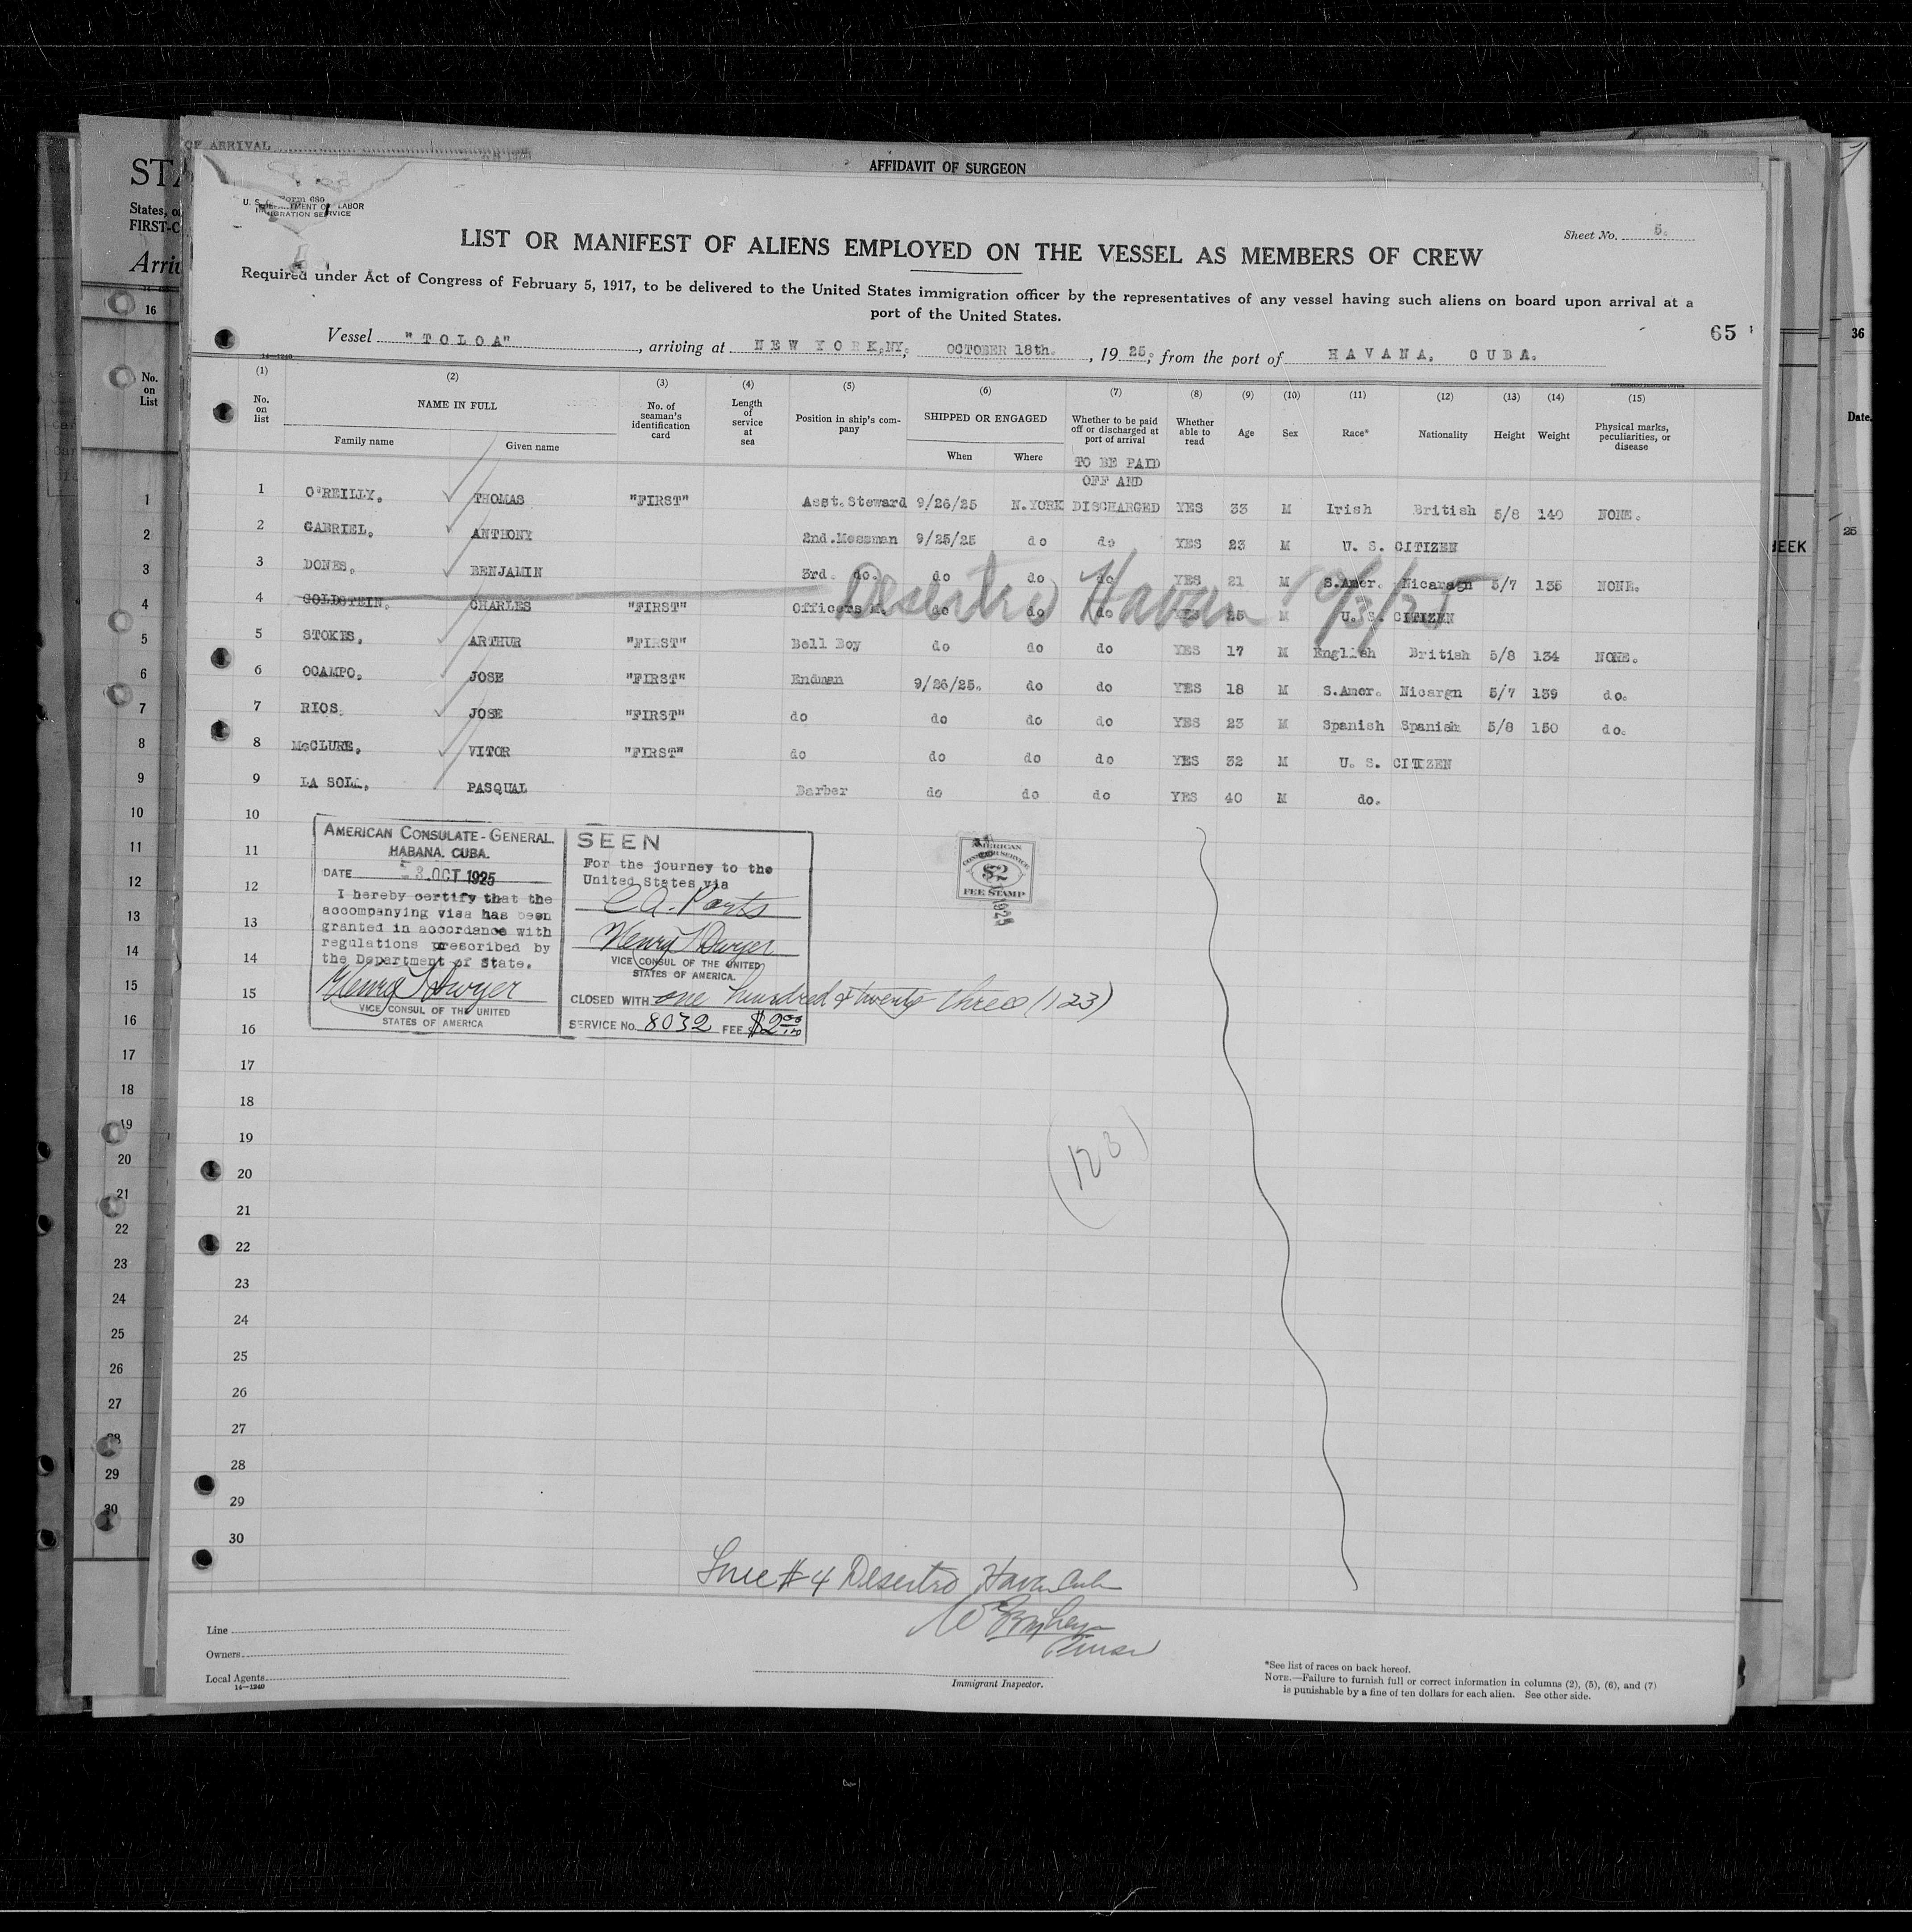 OF ARRIVAL
AFFIDAVIT OF SURGEON
STA
States, o
FIRST-C
Arri
U. S. DEPARTMENT OF LABOR
IMMIGRATION SERVICE
Form 680
Sheet No. 5.
LIST OR MANIFEST OF ALIENS EMPLOYED ON THE VESSEL AS MEMBERS OF CREW
Required under Act of Congress of February 5, 1917, to be delivered to the United States immigration officer by the representatives of any vessel having such aliens on board upon arrival at a
port of the United States.
65
Vessel "TOLOA", arriving at NEW YORK,NY, OCTOBER 18th., 1925, from the port of HAVANA, CUBA.
14-1240
(1) (2) (3) (4) (5) (6) (7) (8) (9) (10) (11) (12) (13) (14) (15)
No. on list NAME IN FULL No. of seaman's identification card Length of service at sea Position in ship's company SHIPPED OR ENGAGED Whether to be paid off or discharged at port of arrival Whether able to read Age Sex Race* Nationality Height Weight Physical marks, peculiarities, or disease
Family name Given name When Where
TO BE PAID
OFF AND
1 O'REILLY, THOMAS "FIRST" Asst.Steward 9/26/25 N.YORK DISCHARGED YES 33 M Irish British 5/8 140 NONE.
2 GABRIEL, ANTHONY 2nd.Messman 9/25/25 do do YES 23 M U. S. CITIZEN
3 DONES, BENJAMIN 3rd. do. do do do YES 21 M S.Amer. Nicaragn 5/7 135 NONE.
4 GOLDSTEIN, CHARLES "FIRST" Officers M. do do do YES 25 M U. S. CITIZEN
Desertro Havan 10/3/25
5 STOKES, ARTHUR "FIRST" Bell Boy do do do YES 17 M English British 5/8 134 NONE.
6 OCAMPO, JOSE "FIRST" Endman 9/26/25. do do YES 18 M S.Amer. Nicargn 5/7 139 do.
7 RIOS. JOSE "FIRST" do do do do YES 23 M Spanish Spanish 5/8 150 do.
8 McCLURE, VITOR "FIRST" do do do do YES 32 M U. S. CITIZEN
9 LA SOLA, PASQUAL Barber do do do YES 40 M do.
10
11
12
13
14
15
16
17
18
19
20
21
22
23
24
25
26
27
28
29
30
AMERICAN CONSULATE-GENERAL.
HABANA. CUBA.
DATE 3.OCT 1925
I hereby certify that the
accompanying visa has been
granted in accordance with
regulations prescribed by
the Department of State.
Henry T Dwyer
VICE CONSUL OF THE UNITED
STATES OF AMERICA
SEEN
For the journey to the
United States via
C.A. Ports
Henry T Dwyer
VICE CONSUL OF THE UNITED
STATES OF AMERICA.
CLOSED WITH one hundred & twenty three (123)
SERVICE No. 8032 FEE $2.00
AMERICAN
CONSULAR SERVICE
$2
FEE STAMP
(123)
Line # 4 Desertro Havan Cuba
Purser
Line
Owners
Local Agents
14-1240
Immigrant Inspector.
*See list of races on back hereof.
NOTE.—Failure to furnish full or correct information in columns (2), (5), (6), and (7)
is punishable by a fine of ten dollars for each alien. See other side.
16
No.
on
List
1
2
3
4
5
6
7
8
9
10
11
12
13
14
15
16
17
18
19
20
21
22
23
24
25
26
27
28
29
30
36
Date.
25